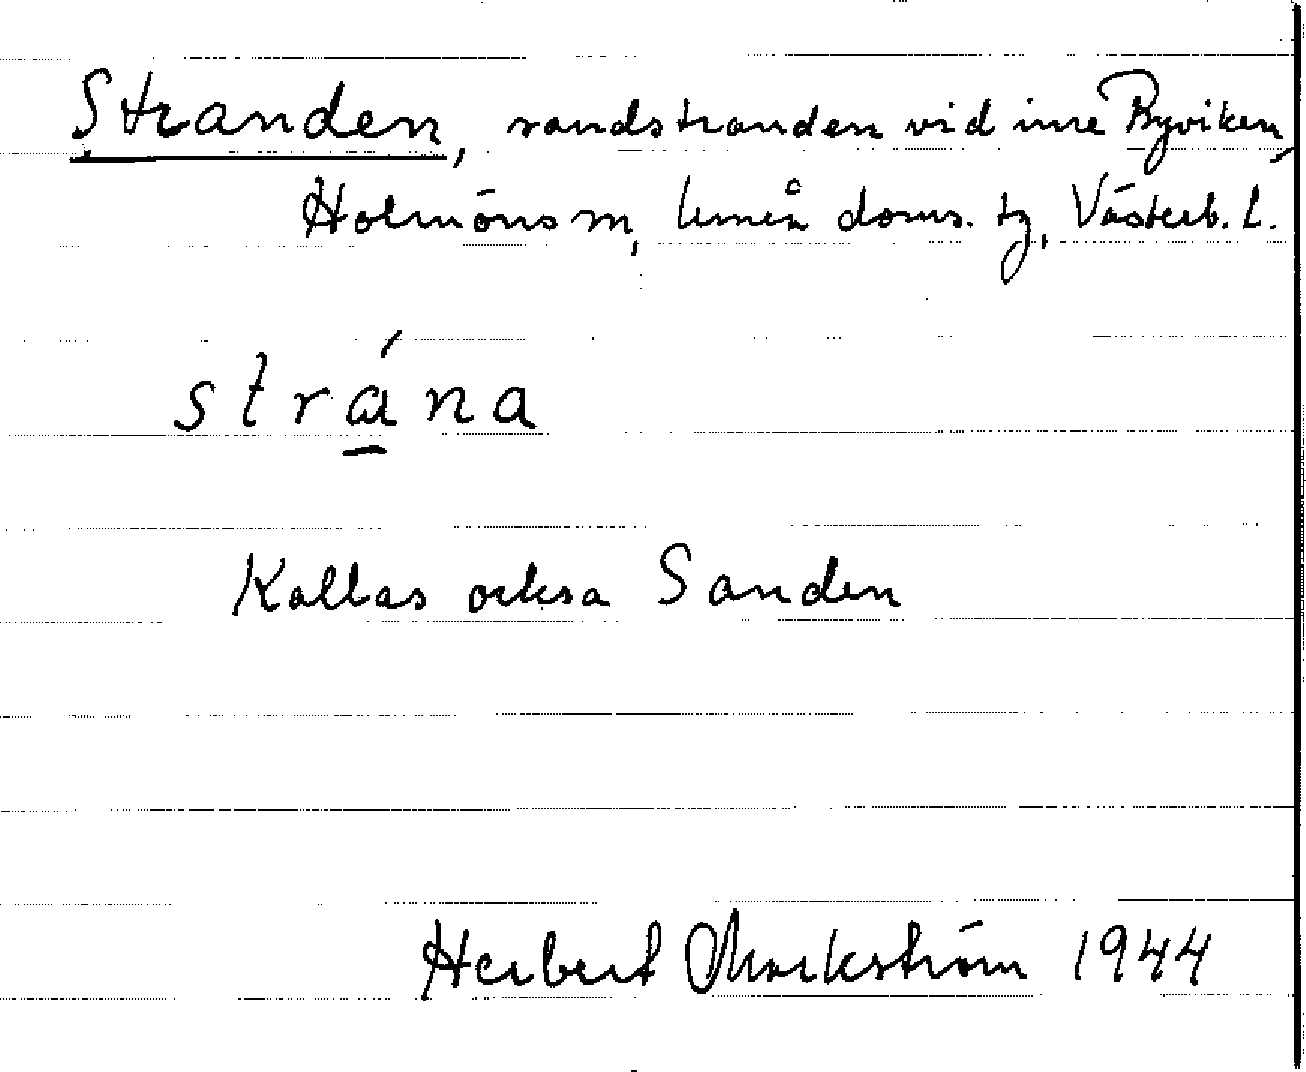 Stranden, sandstranden vid inre Byviken,
Holmöns sn, Umeå doms. tg, Västerb. L.
strána
Kallas också Sanden
Herbert Markström 1944